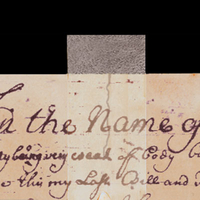 the Name of
being very weak off body b
this my Last Will and